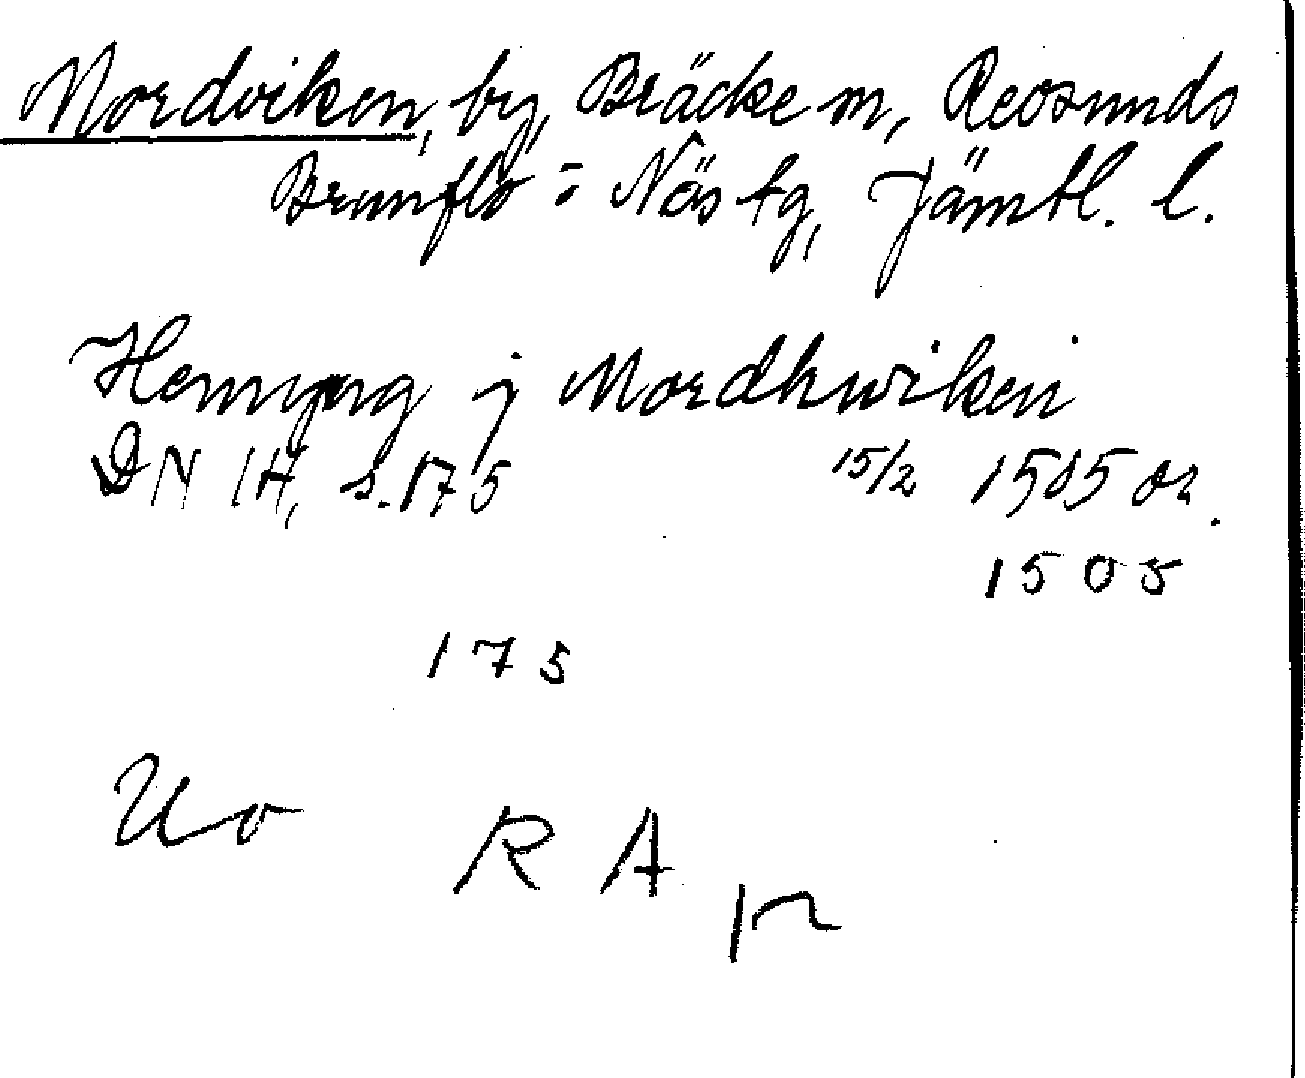 Mordviken, by, Bräcke sn, Revsunds
Brunflo = Näs tg, Jämtl. l.
Hemyng j Mordhwiken
DN 14, s. 175 15/2 1505 or.
1505
175
Uo
RA
pr